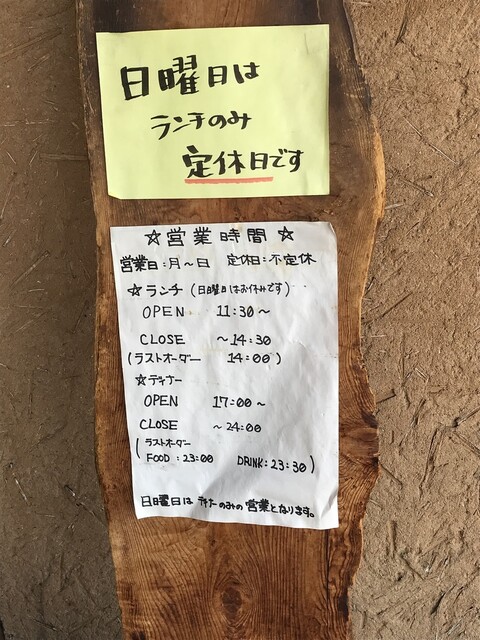 日曜日は
ランチのみ
定休日です
☆営業時間☆
営業日:月～日 定休日:不定休
☆ランチ(日曜日はお休みです)
OPEN 11:30～
CLOSE ～14:30
(ラストオーダー 14:00)
☆ディナー
OPEN 17:00～
CLOSE ～24:00
(ラストオーダー
FOOD:23:00 DRINK:23:30)
日曜日はディナーのみの営業となります。